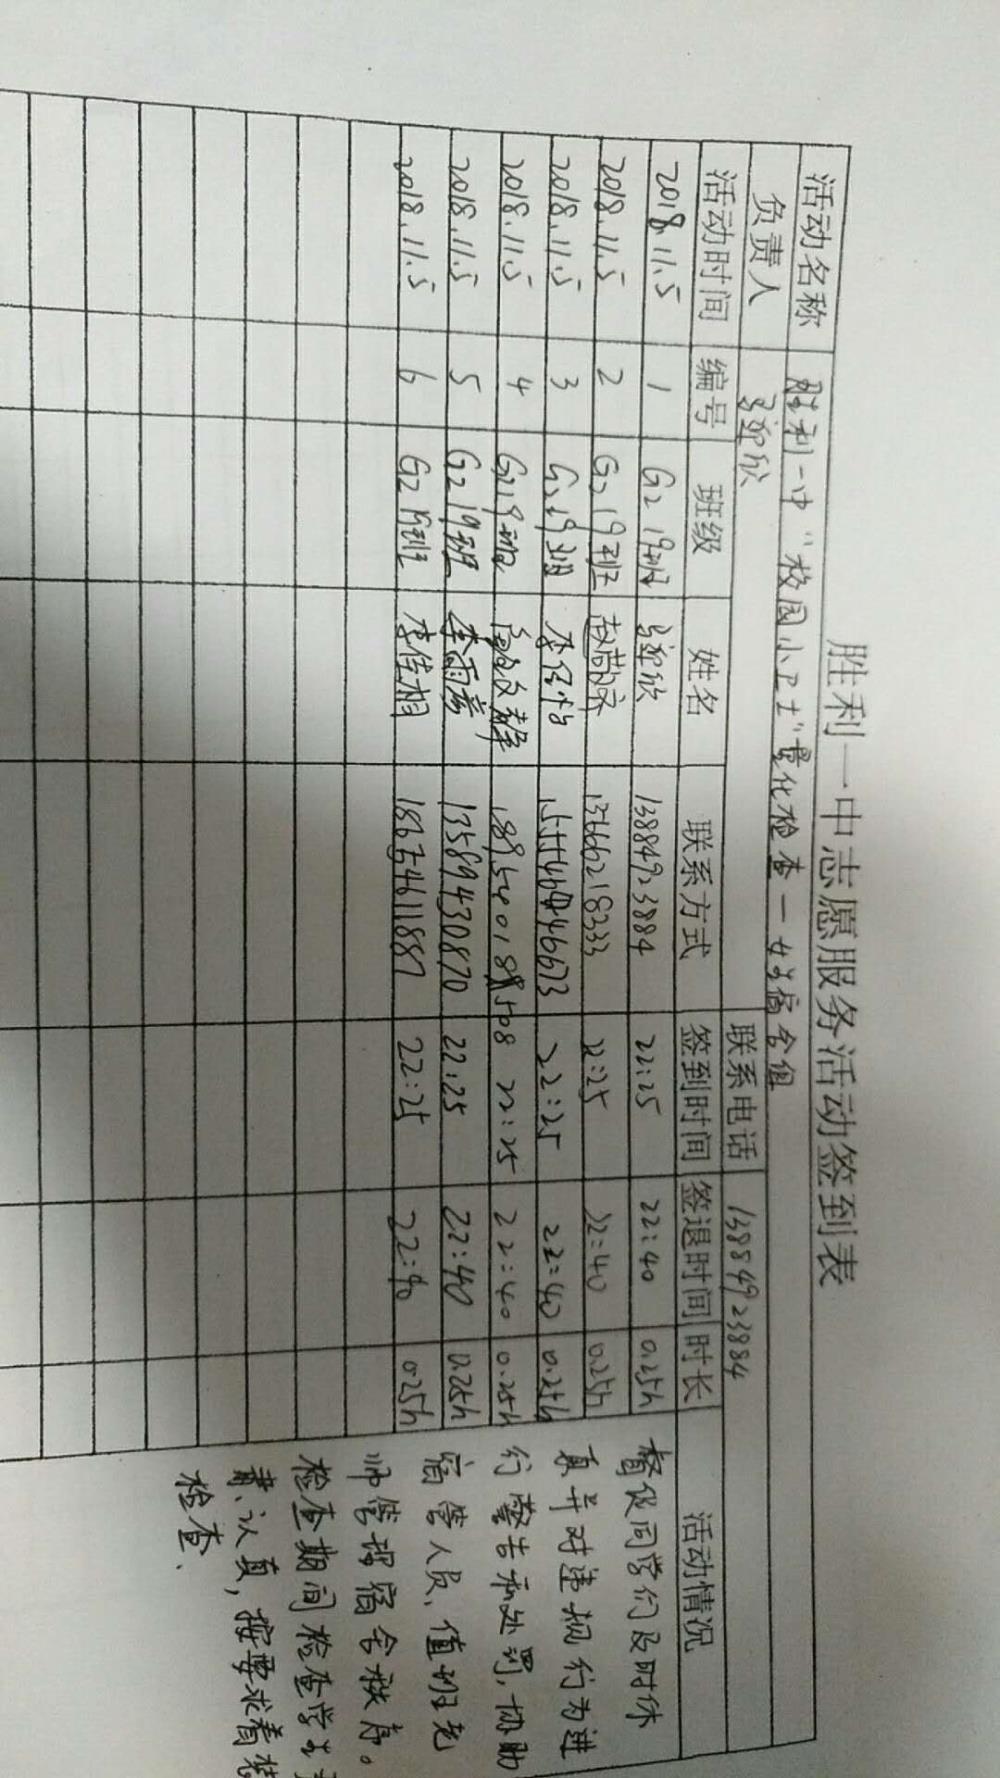 胜利一中志愿服务活动签到表
活动名称 胜利一中“校园小卫士”量化检查—女生宿舍组
负责人 联系电话 13884923884
活动时间 编号 班级 姓名 联系方式 签到时间 签退时间 时长 活动情况
2018.11.5 1 G2 19班 13884923884 22:25 22:40 0.25h
2018.11.5 2 G2 19班 13666218333 22:25 22:40 0.25h
2018.11.5 3 G2 19班 22:25 22:40 0.25h
2018.11.5 4 G2 19班 22:25 22:40 0.25h
2018.11.5 5 G2 19班 李雨彦 13589430870 22:25 22:40 0.25h
2018.11.5 6 G2 19班 李佳相 22:25 22:40 0.25h
督促同学们及时休
真并对违规行为进
行警告和处罚,协助
宿管人员、值班老
师管理宿舍秩序。
检查期间检查学生
责、认真,按要求着装
检查.